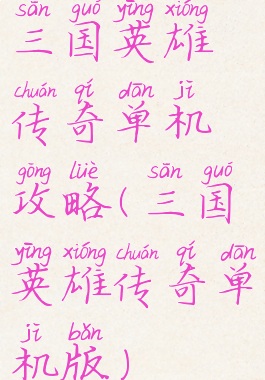 sān guó yīng xióng
三国英雄
chuán qí dān jī
传奇单机
gōng lüè sān guó
攻略(三国
yīng xióng chuán qí dān
英雄传奇单
jī bǎn
机版)